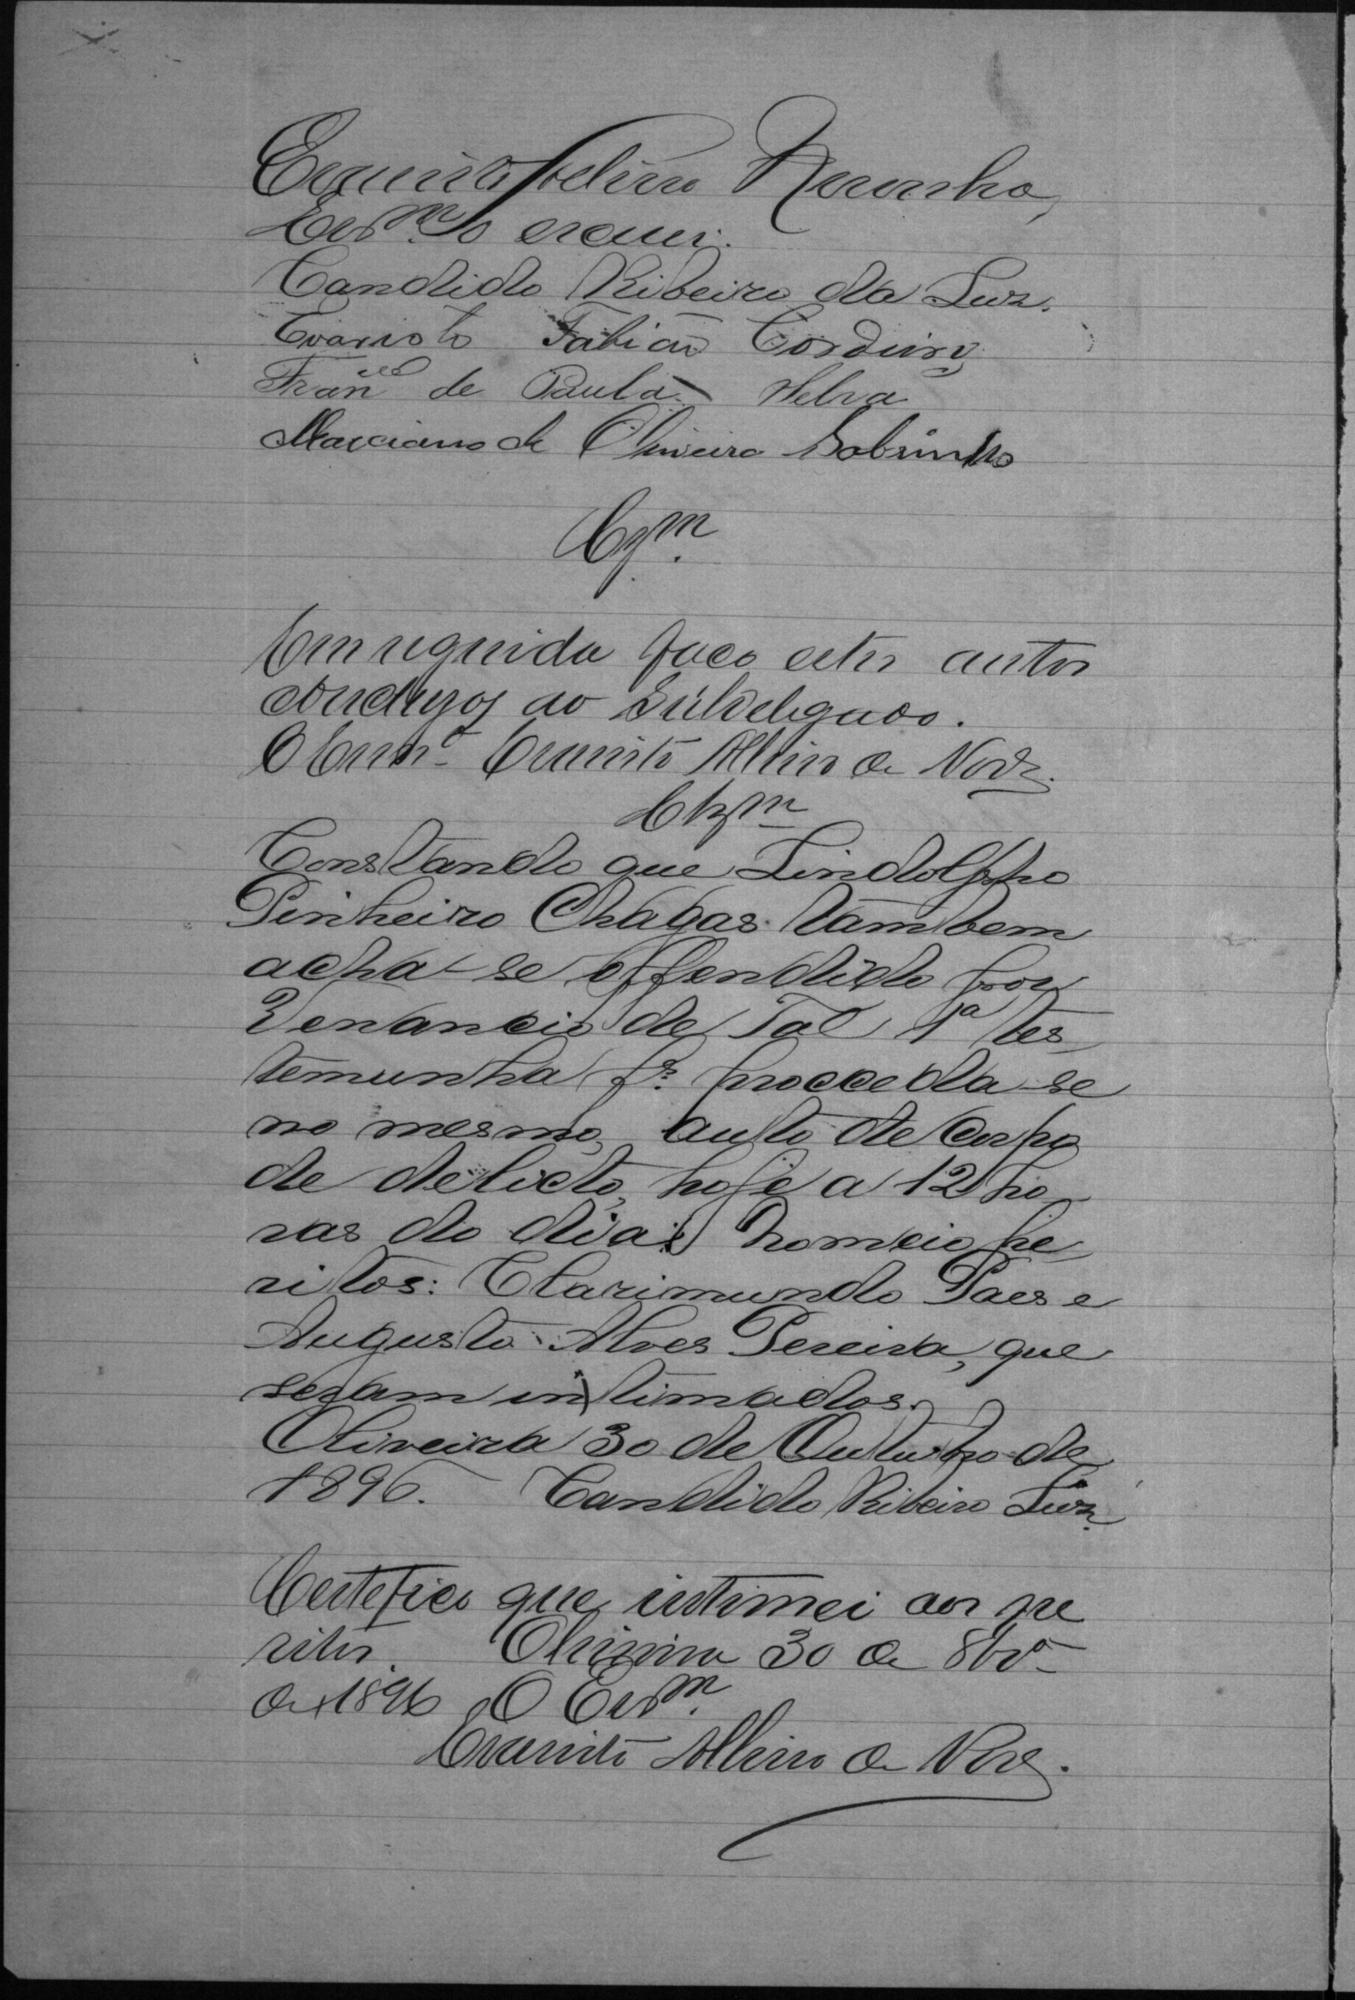 Escrm o escrevi.
Candido Ribeiro da Luz.
Evaristo Fabiaõ Cordeiro
Franco de Paula Selva
Marciano de Oliveira Sobrinho
Clzm
Em seguida faco estes autos
concluzos ao Subdelegado.
O Escrm Evaristo Albino de Norz.
Clzm
Constando que Lindolpho
Pinheiro Chagas tambem
acha-se offendido por
Venancio de Tal 1a tes
temunha fs. proceda-se
no mesmo, auto de corpo
de delicto, hoje a 12 ho
ras do dia; nomeio pe
ritos: Clarimundo Paes e
Augusto Alves Pereira, que
seram intimados.
Oliveira 30 de Outubro de
1896. Candido Ribeiro Luz
Certefico que intimei aos pe
ritos. Oliveira 30 de 8bro
de 1896 O Escrm.
Evaristo Albino de Norz.